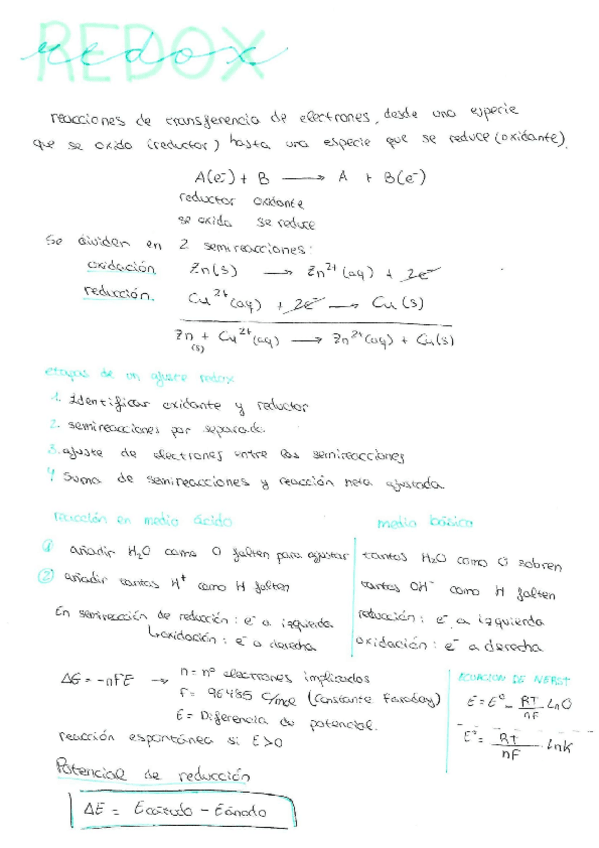 REDOX
redox
reacciones de transferencia de electrones, desde una especie
que se oxida (reductor) hasta una especie que se reduce (oxidante).
A(e⁻) + B ⟶ A + B(e⁻)
reductor oxidante
se oxida se reduce
Se dividen en 2 semireacciones:
oxidación Zn(s) ⟶ Zn²⁺(aq) + 2e⁻
reducción. Cu²⁺(aq) + 2e⁻ ⟶ Cu(s)
Zn(s) + Cu²⁺(aq) ⟶ Zn²⁺(aq) + Cu(s)
etapas de un ajuste redox
1. Identificar oxidante y reductor
2. semireacciones por separado.
3. ajuste de electrones entre las semireacciones
4 Suma de semireacciones y reacción neta ajustada.
reacción en medio ácido
① añadir H₂O como O falten para ajustar
② añadir tantos H⁺ como H falten
En semireacción de reducción: e⁻ a izquierda
oxidación: e⁻ a derecha
medio básico
tantas H₂O como O sobren
tantos OH⁻ como H falten
reducción: e⁻ a izquierda
oxidación: e⁻ a derecha
ΔG = -nFE → n = nº electrones implicados
F = 96485 C/mol (Constante Faraday)
E = Diferencia de potencial.
reacción espontánea si E>0
ECUACIÓN DE NERST
E = E° - RT/nF LnQ
E° = RT/nF · LnK
Potencial de reducción
ΔE = Ecátodo - Eánodo